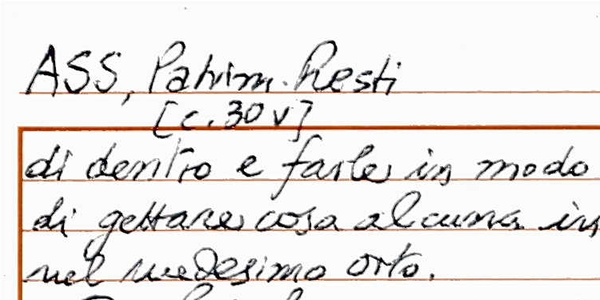 ASS, Patrim. Resti
[c. 30 v]
di dentro e farle in modo
di gettare cosa alcuna in
nel medesimo orto.